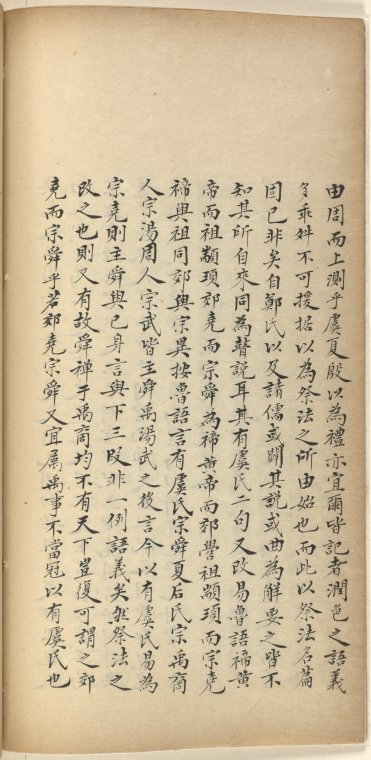 由周而上測乎虞夏殷以為禮亦宜爾皆記者潤色之語義
多乖舛不可援据以為祭法之所由始也而此以祭法名篇
固已非矣自鄭氏以及諸儒或闢其說或曲為解要之皆不
知其所自來同為瞽說耳其有虞氏二句又改易魯語禘黃
帝而祖顓頊郊堯而宗舜為禘黃帝而郊嚳祖顓頊而宗堯
禘與祖同郊與宗異按魯語言有虞氏宗舜夏后氏宗禹商
人宗湯周人宗武皆主舜禹湯武之後言今以有虞氏易為
宗堯則主舜與已身言與下三段非一例語義矣然祭法之
改之也則又有故舜禪于禹商均不有天下豈復可謂之郊
堯而宗舜乎若郊堯宗舜又宜屬禹事不當冠以有虞氏也